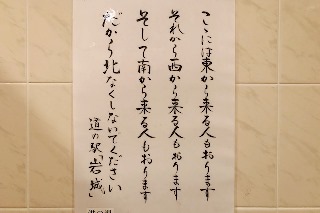 ここには東から来る人もおります
それから西から来る人もおります
そして南から来る人もおります
だから北なくしないでください
道の駅「岩城」